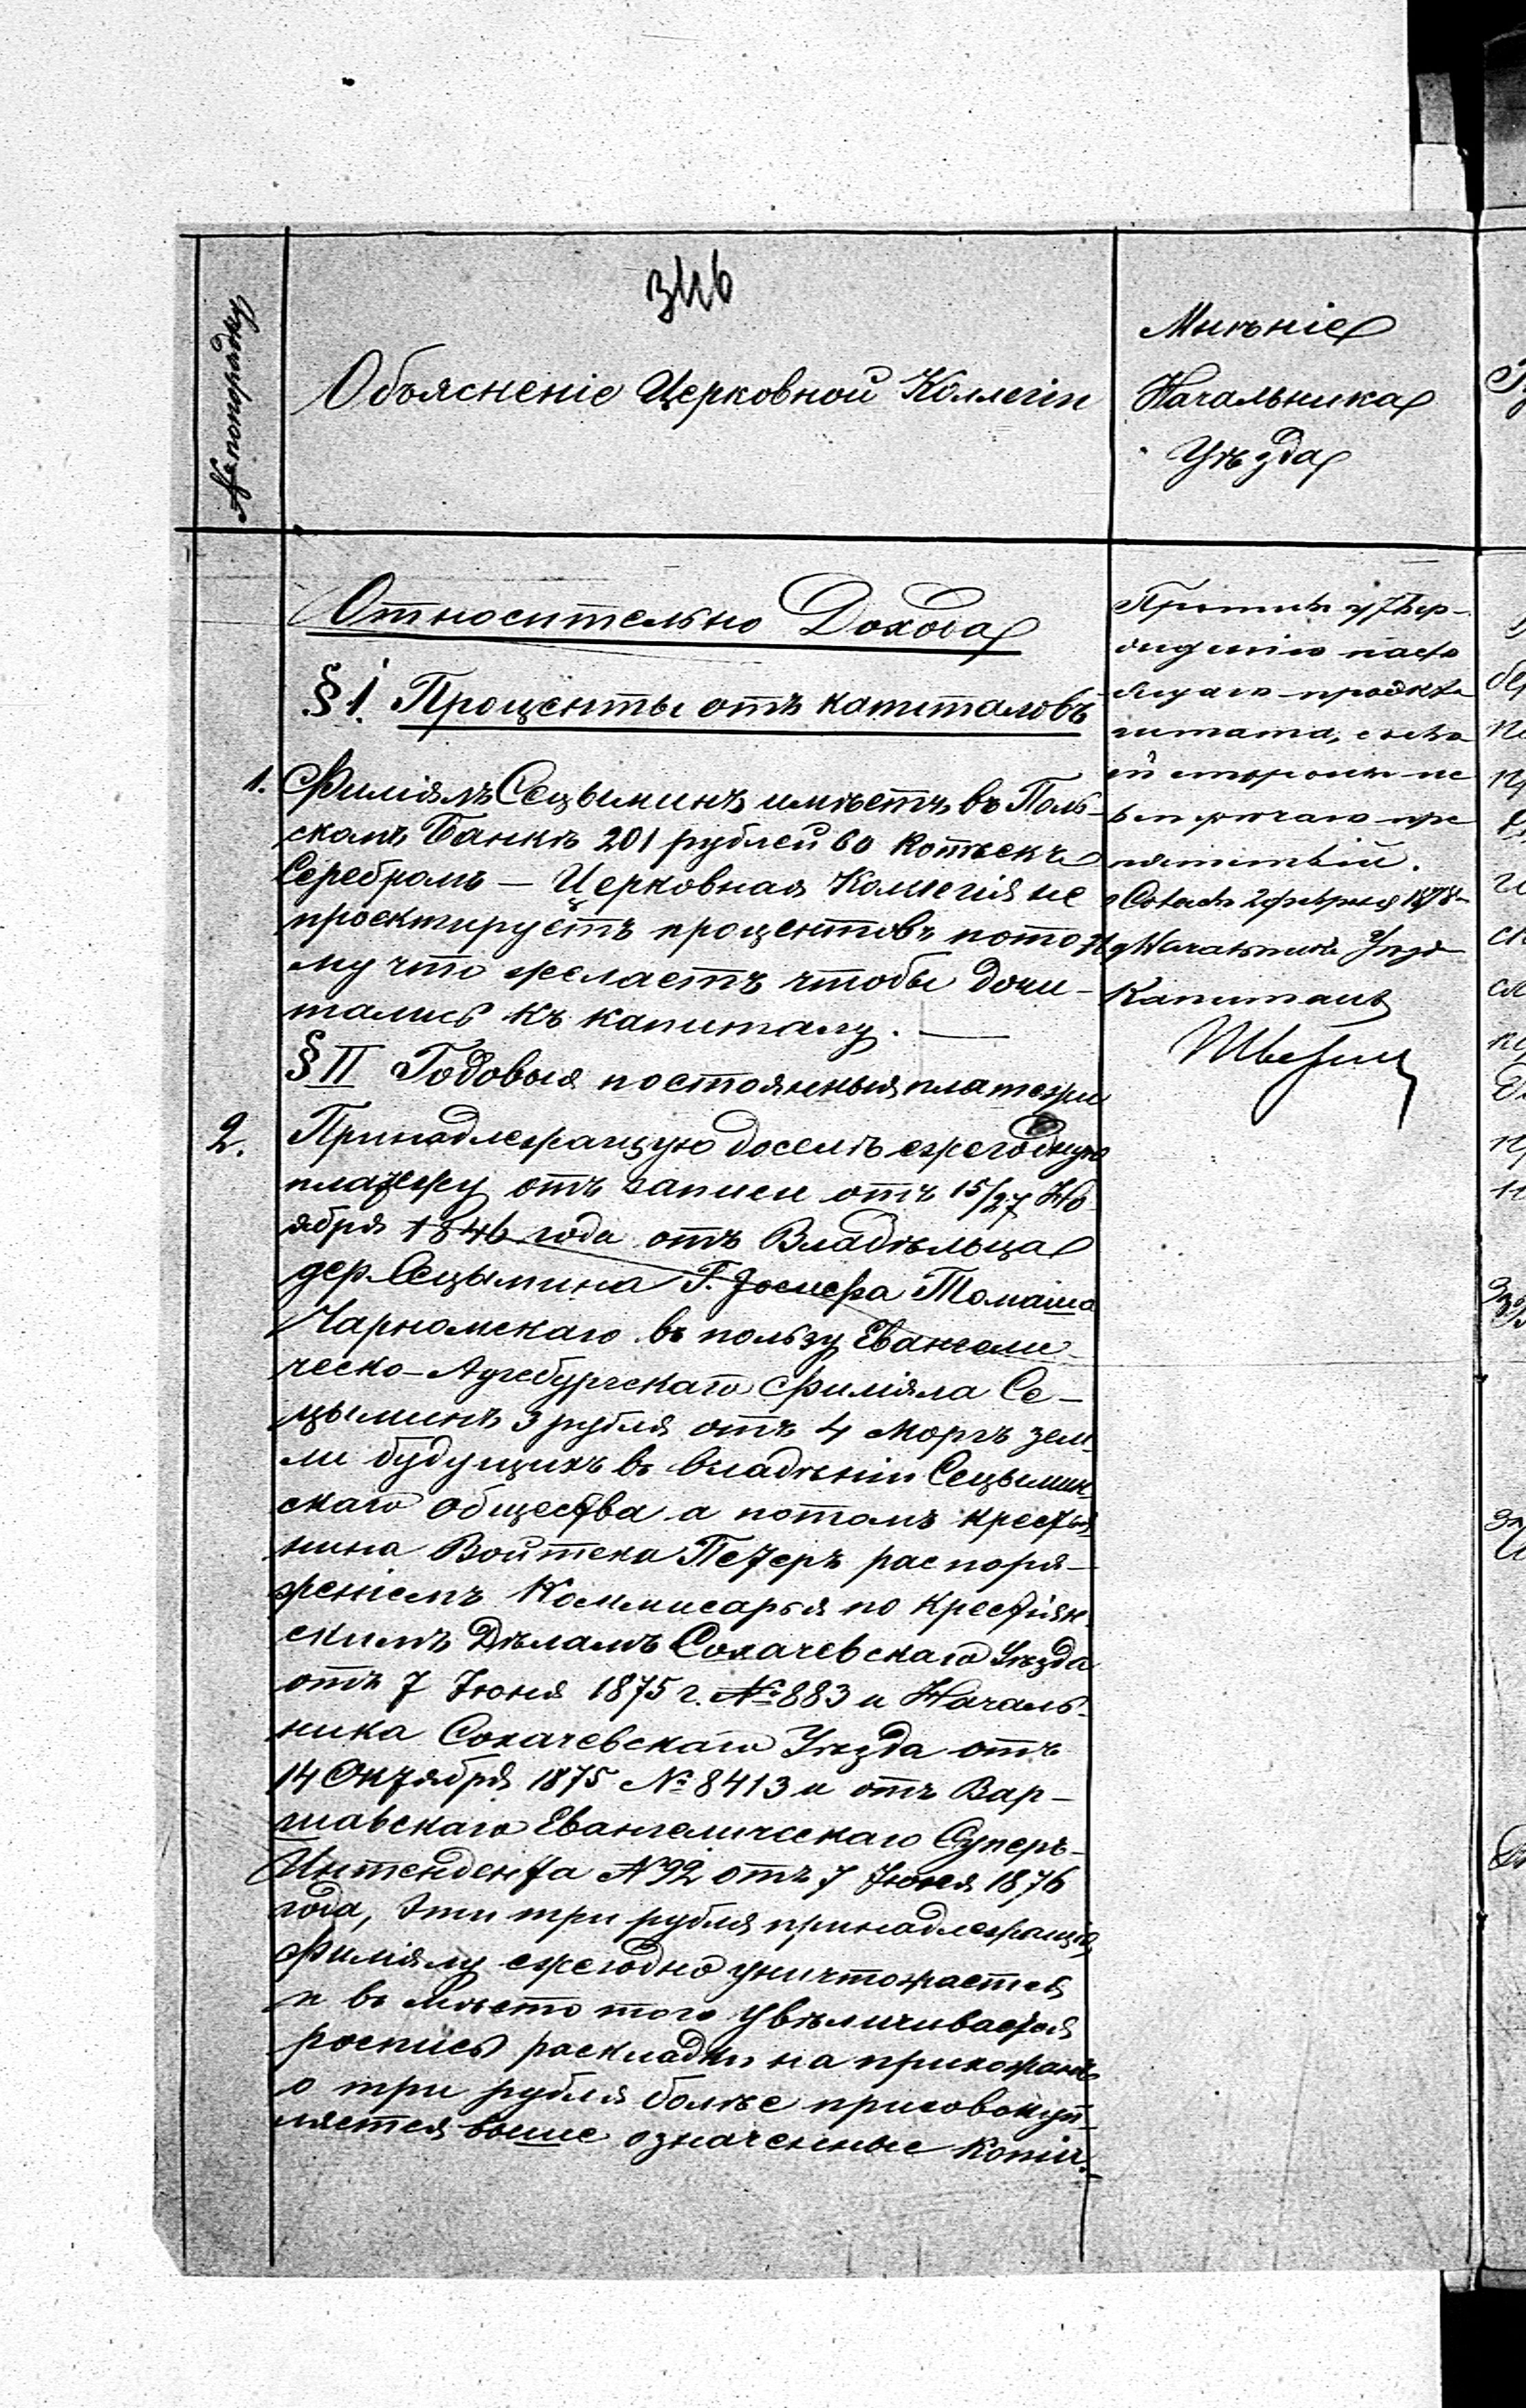 346
№ по порядку
Объясненіе Церковной Коллегіи
Мнѣніе
Начальника
Уѣзда
Относительно Дохода
§ 1. Проценты отъ капиталовъ
1. Филіялъ Сецыминъ имѣетъ въ Поль-
скомъ Банкѣ 201 рублей 60 копѣекъ
Серебромъ — Церковная Коллегія не
проектируетъ процентовъ пото
му что желаетъ чтобы дочи-
тались къ капиталу. —
§ II Годовыя постоянныя платежи
2. Принадлежащую доселѣ ежегодную
платежу отъ записи отъ 15/27 Но-
ября 1846 года отъ Владѣльца
дер Сецымина Г. Іосифа Томаша
Чарномскаго въ пользу Евангели-
ческо-Аугсбургскаго Филіяла Се-
цыминъ 3 рубля отъ 4 моргъ зем-
ли будущихъ въ владѣніи Сецымин-
скаго общества а потомъ крестья-
нина Войтека Петеръ распоря-
женіемъ Коммисарья по Крестьян-
скимъ Дѣламъ Сохачевскаго Уѣзда
отъ 7 Іюня 1875 г. № 883 и Началь-
ника Сохачевскаго Уѣзда отъ
14 Октября 1875 № 8413 и отъ Вар-
шавскаго Евангелическаго Суперъ-
Интендента № 92 отъ 7 Іюня 1876
года, эти три рубля принадлежащія
Филіялу ежегодно уничтожается
и въ мѣсто того увѣличивается
роспись раскладки на прихожанъ
о три рубля болѣе присовокуп-
ляется выше означенные копіи.
Противъ утвер-
жденію насто
ящаго проекта
штата, съ сво
ей стороны не
встрѣчаю пре
пятствій.
2 февраля 1878
Начальникъ Уѣзда
Капитанъ